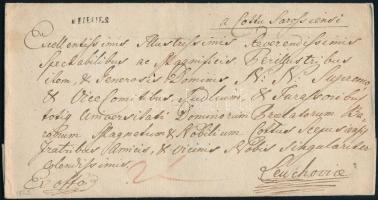 a Cottu Sarossiensi
Excellentissimis Illustrissimis Reverendissimis
Spectabilibus ac Magnificis Perillustribus
item, & Generosis Dominis N: N: Supremo
& Vice Comitibus, Judlium, & Jurassoribus
totiq Universitati Dominorum Praelatorum Ba-
ronum Magnatum & Nobilium Cottus Scepusiensis
Fratribus Amicis, & Vicinis Nobis Singulariter
Colendissimis.
Ex offo Leuchoviae